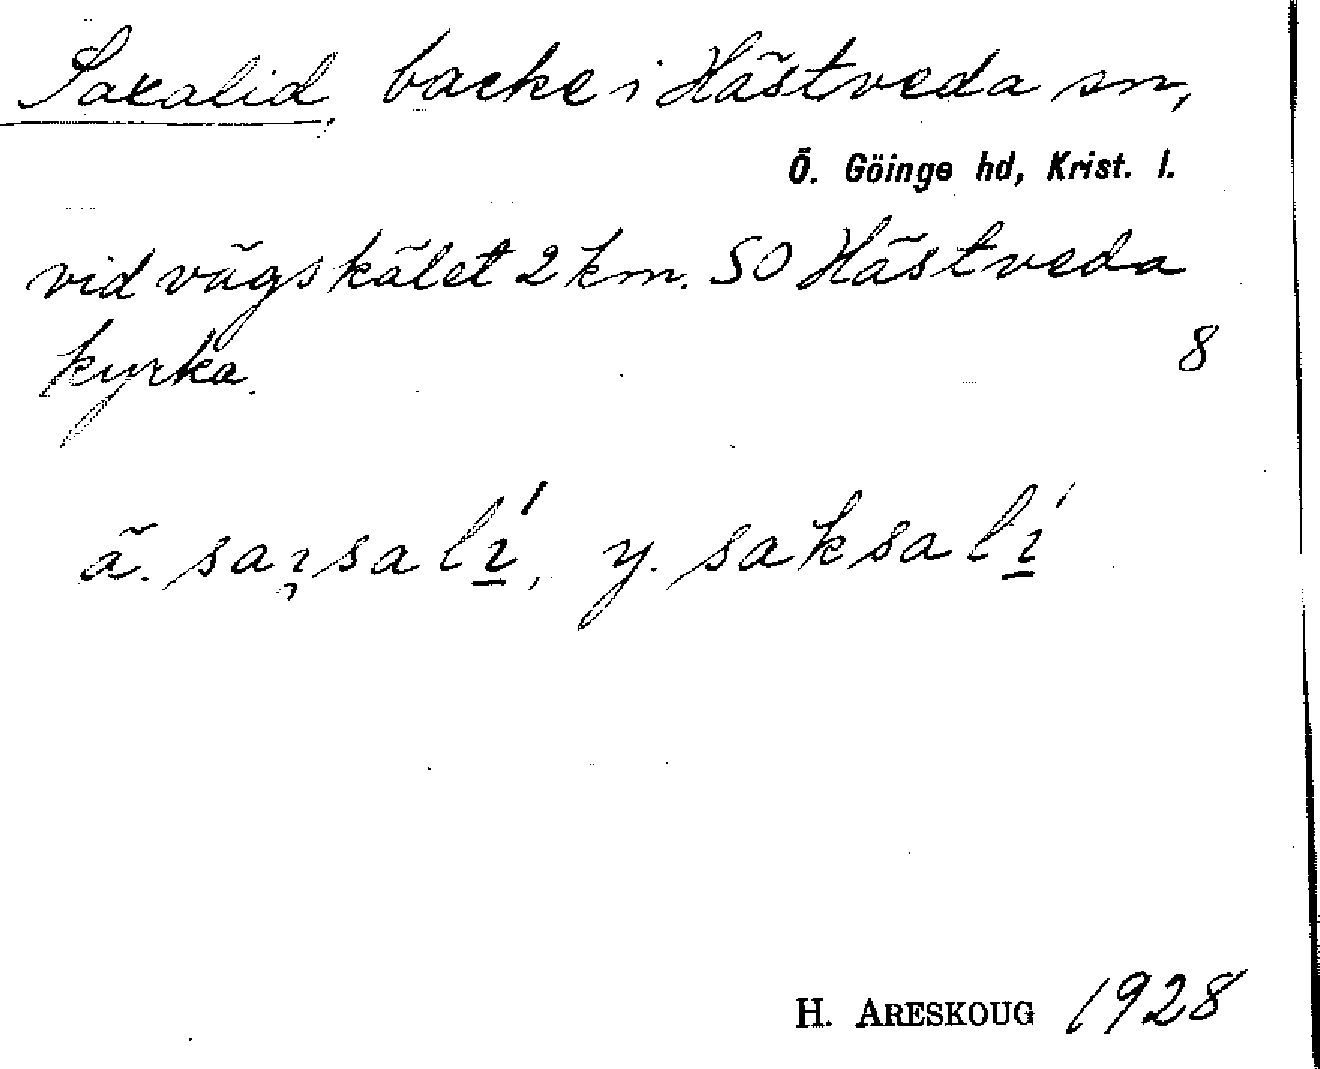 Saxalid, backe i Hästveda sn,
Ö. Göinge hd, Krist. l.
vid vägskälet 2 km. SO Hästveda
kyrka. 8
ä. lí, y. saksalí
H. ARESKOUG 1928